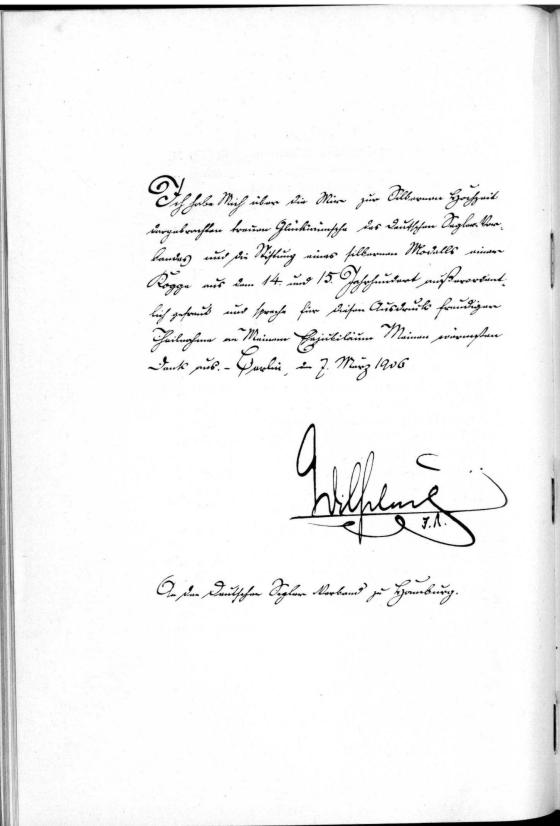 Ich habe Mich über die Mir zur Silbernen Hochzeit
dargebrachten treuen Glückwünsche des Deutschen Segler-Ver-
bandes und die Stiftung eines silbernen Modells einer
Kogge aus dem 14. und 15. Jahrhundert außerordent-
lich gefreut und spreche für diesen Ausdruck freudiger
Theilnahme an Meinem Ehejubiläum Meinen wärmsten
Dank aus. – Berlin, den 7. März 1906
Wilhelm
I.R.
An den Deutschen Segler-Verband zu Hamburg.